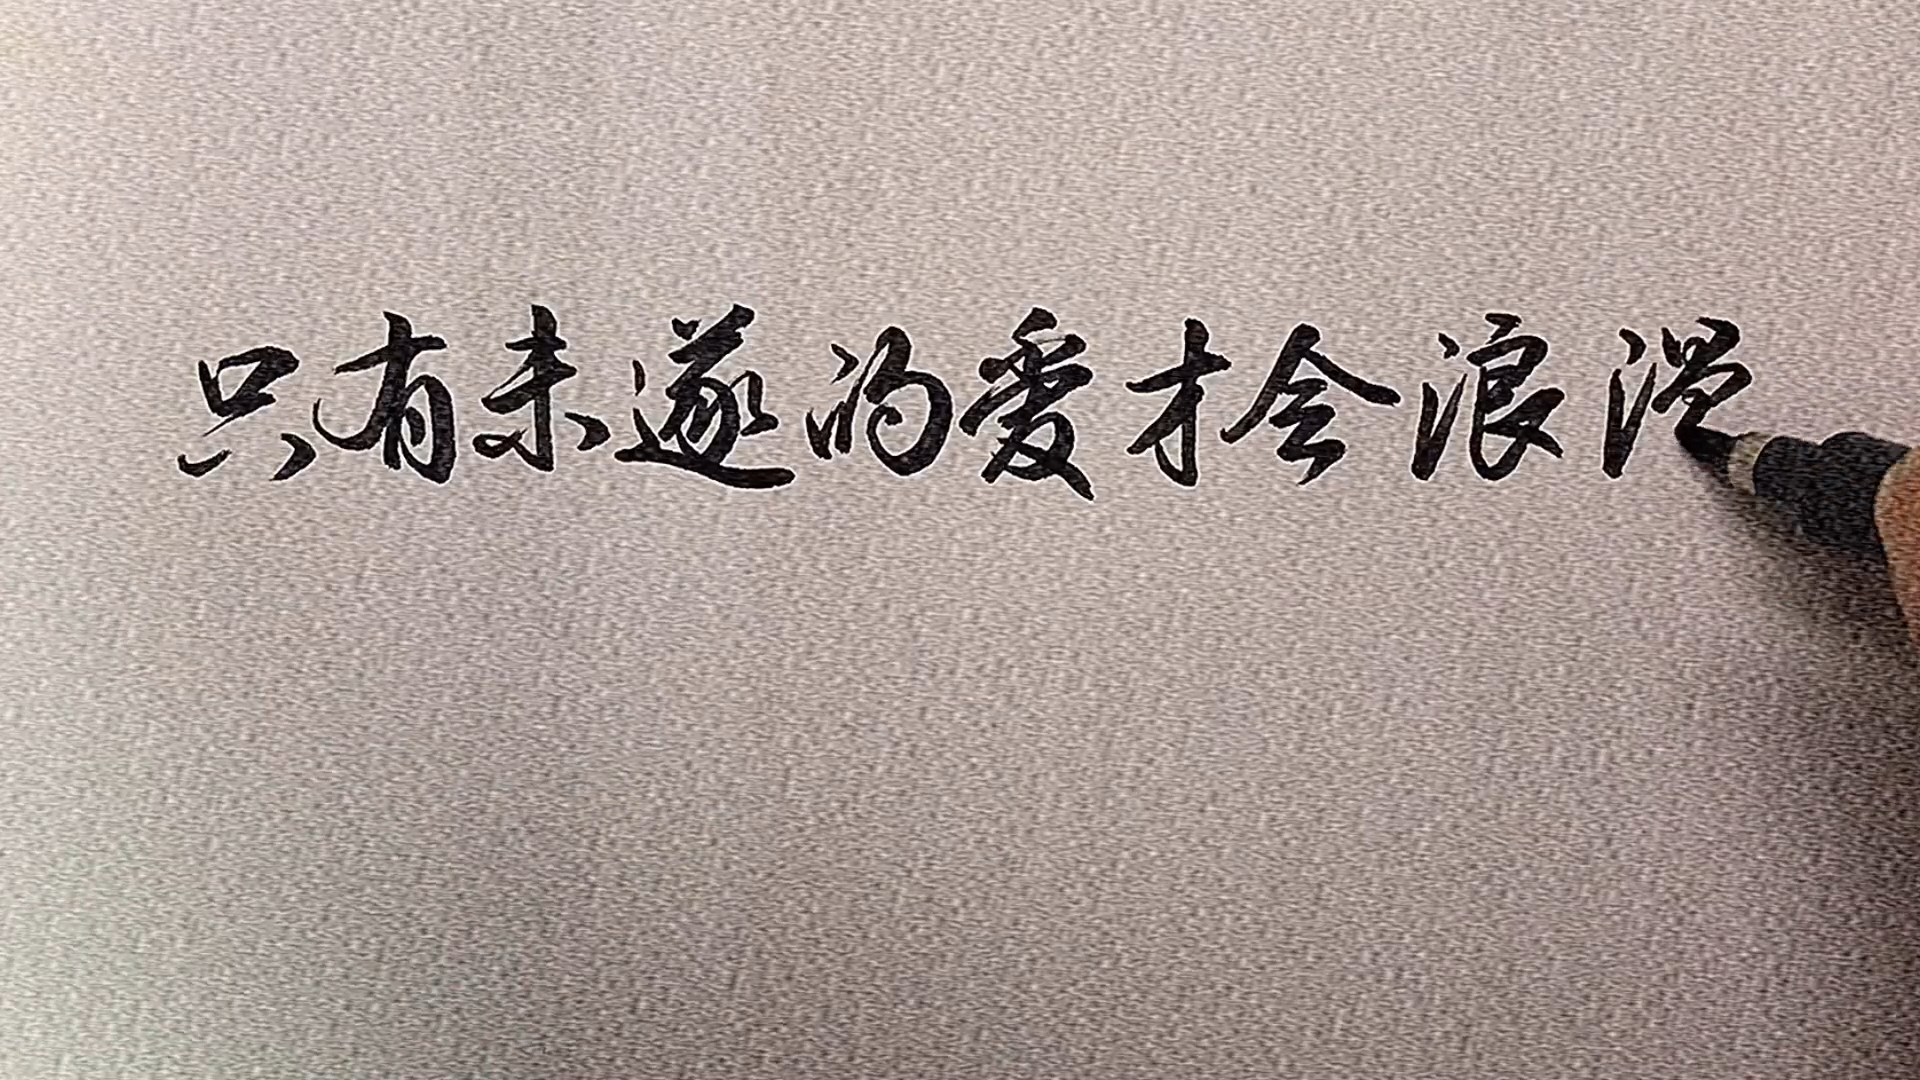 只有未遂的爱才会浪漫